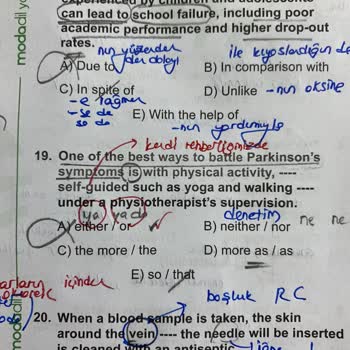 experienced by children and adolescents
can lead to school failure, including poor
academic performance and higher drop-out
rates.
nın yüzünden
den dolayı
ile kıyaslandığın da
A) Due to
B) In comparison with
C) In spite of
D) Unlike
-nın aksine
-e rağmen
-se de
sa da
E) With the help of
-nın yardımıyla
kendi rehberliğinizde
19. One of the best ways to battle Parkinson's
symptoms is with physical activity, ----
self-guided such as yoga and walking ----
under a physiotherapist's supervision.
ya ya da
denetim
ne ne
A) either / or
B) neither / nor
C) the more / the
D) more as / as
E) so / that
içinden
boşluk RC
20. When a blood sample is taken, the skin
around the vein ---- the needle will be inserted
is cleaned with an antiseptic
modadil